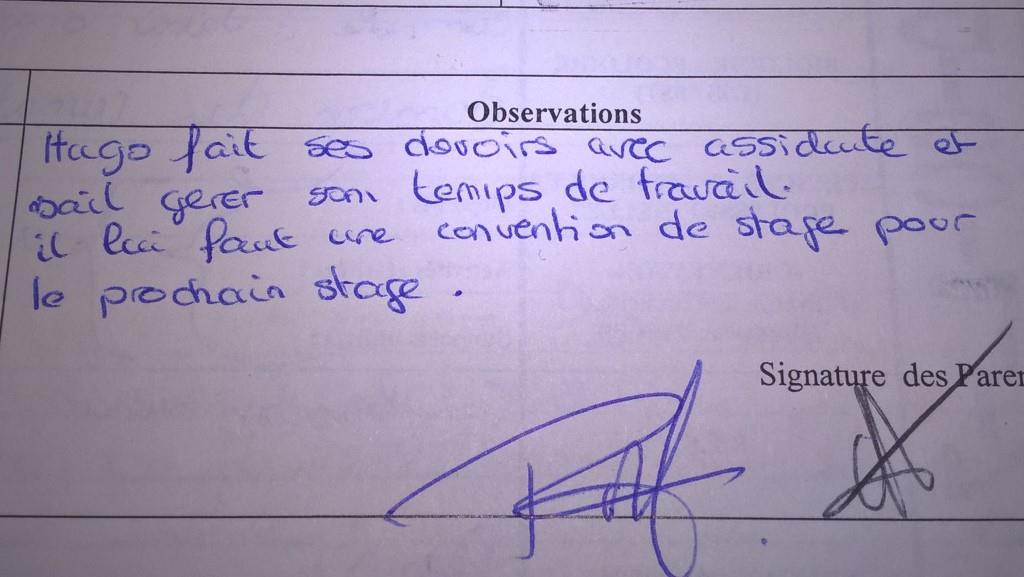 Observations
Hugo fait ses devoirs avec assiduite et
sait gerer son temps de travail.
il lui faut une convention de stage pour
le prochain stage.
Signature des Paren